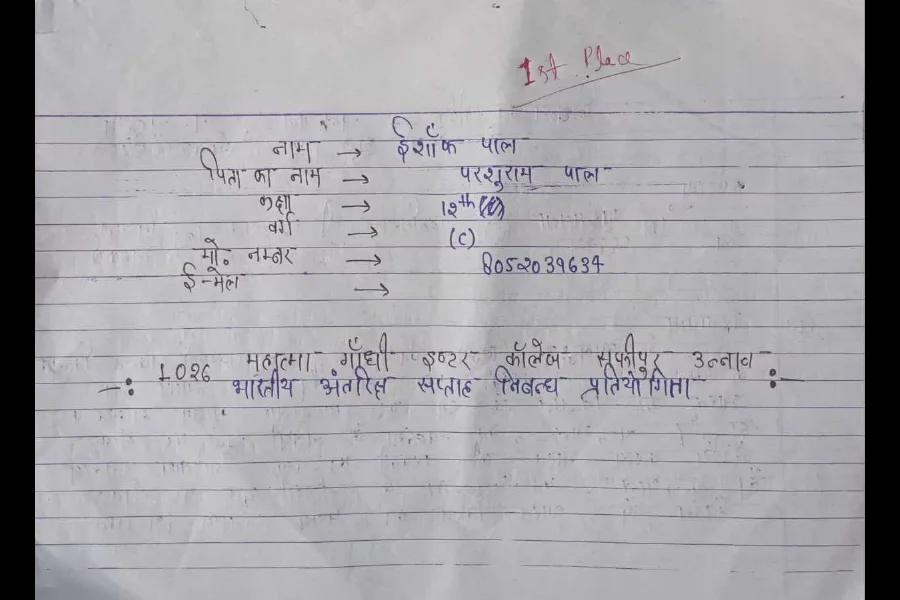 1st Place
नाम → ईर्शाक पाल
पिता का नाम → परशुराम पाल
कक्षा → 12th
वर्ग → (C)
मो० नम्बर → 8052039634
ई-मेल →
1026 महात्मा गाँधी इण्टर कॉलेज सफीपुर उन्नाव
भारतीय अंतरिक्ष सप्ताह निबन्ध प्रतियोगिता